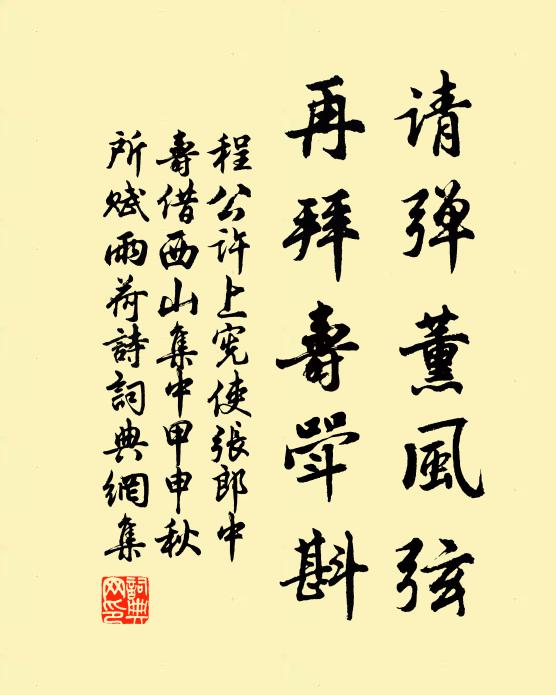 请弹薰風弦
再拜壽斝斟
程公许上宪使張郎中
壽借西山集中甲申秋
所赋雨荷詩詞典網集